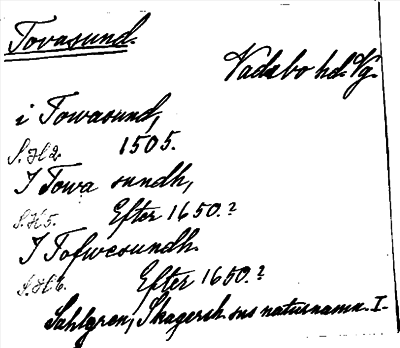 Tovasund.
Vadsbo hd. Vg.
i Towasund,
S.H 2. 1505.
I Towa sundh,
S.H 5. Efter 1650.?
I Tofwesundh.
S.H 6. Efter 1650.?
Sahlgren, Skagersh. sns naturnamn. I-